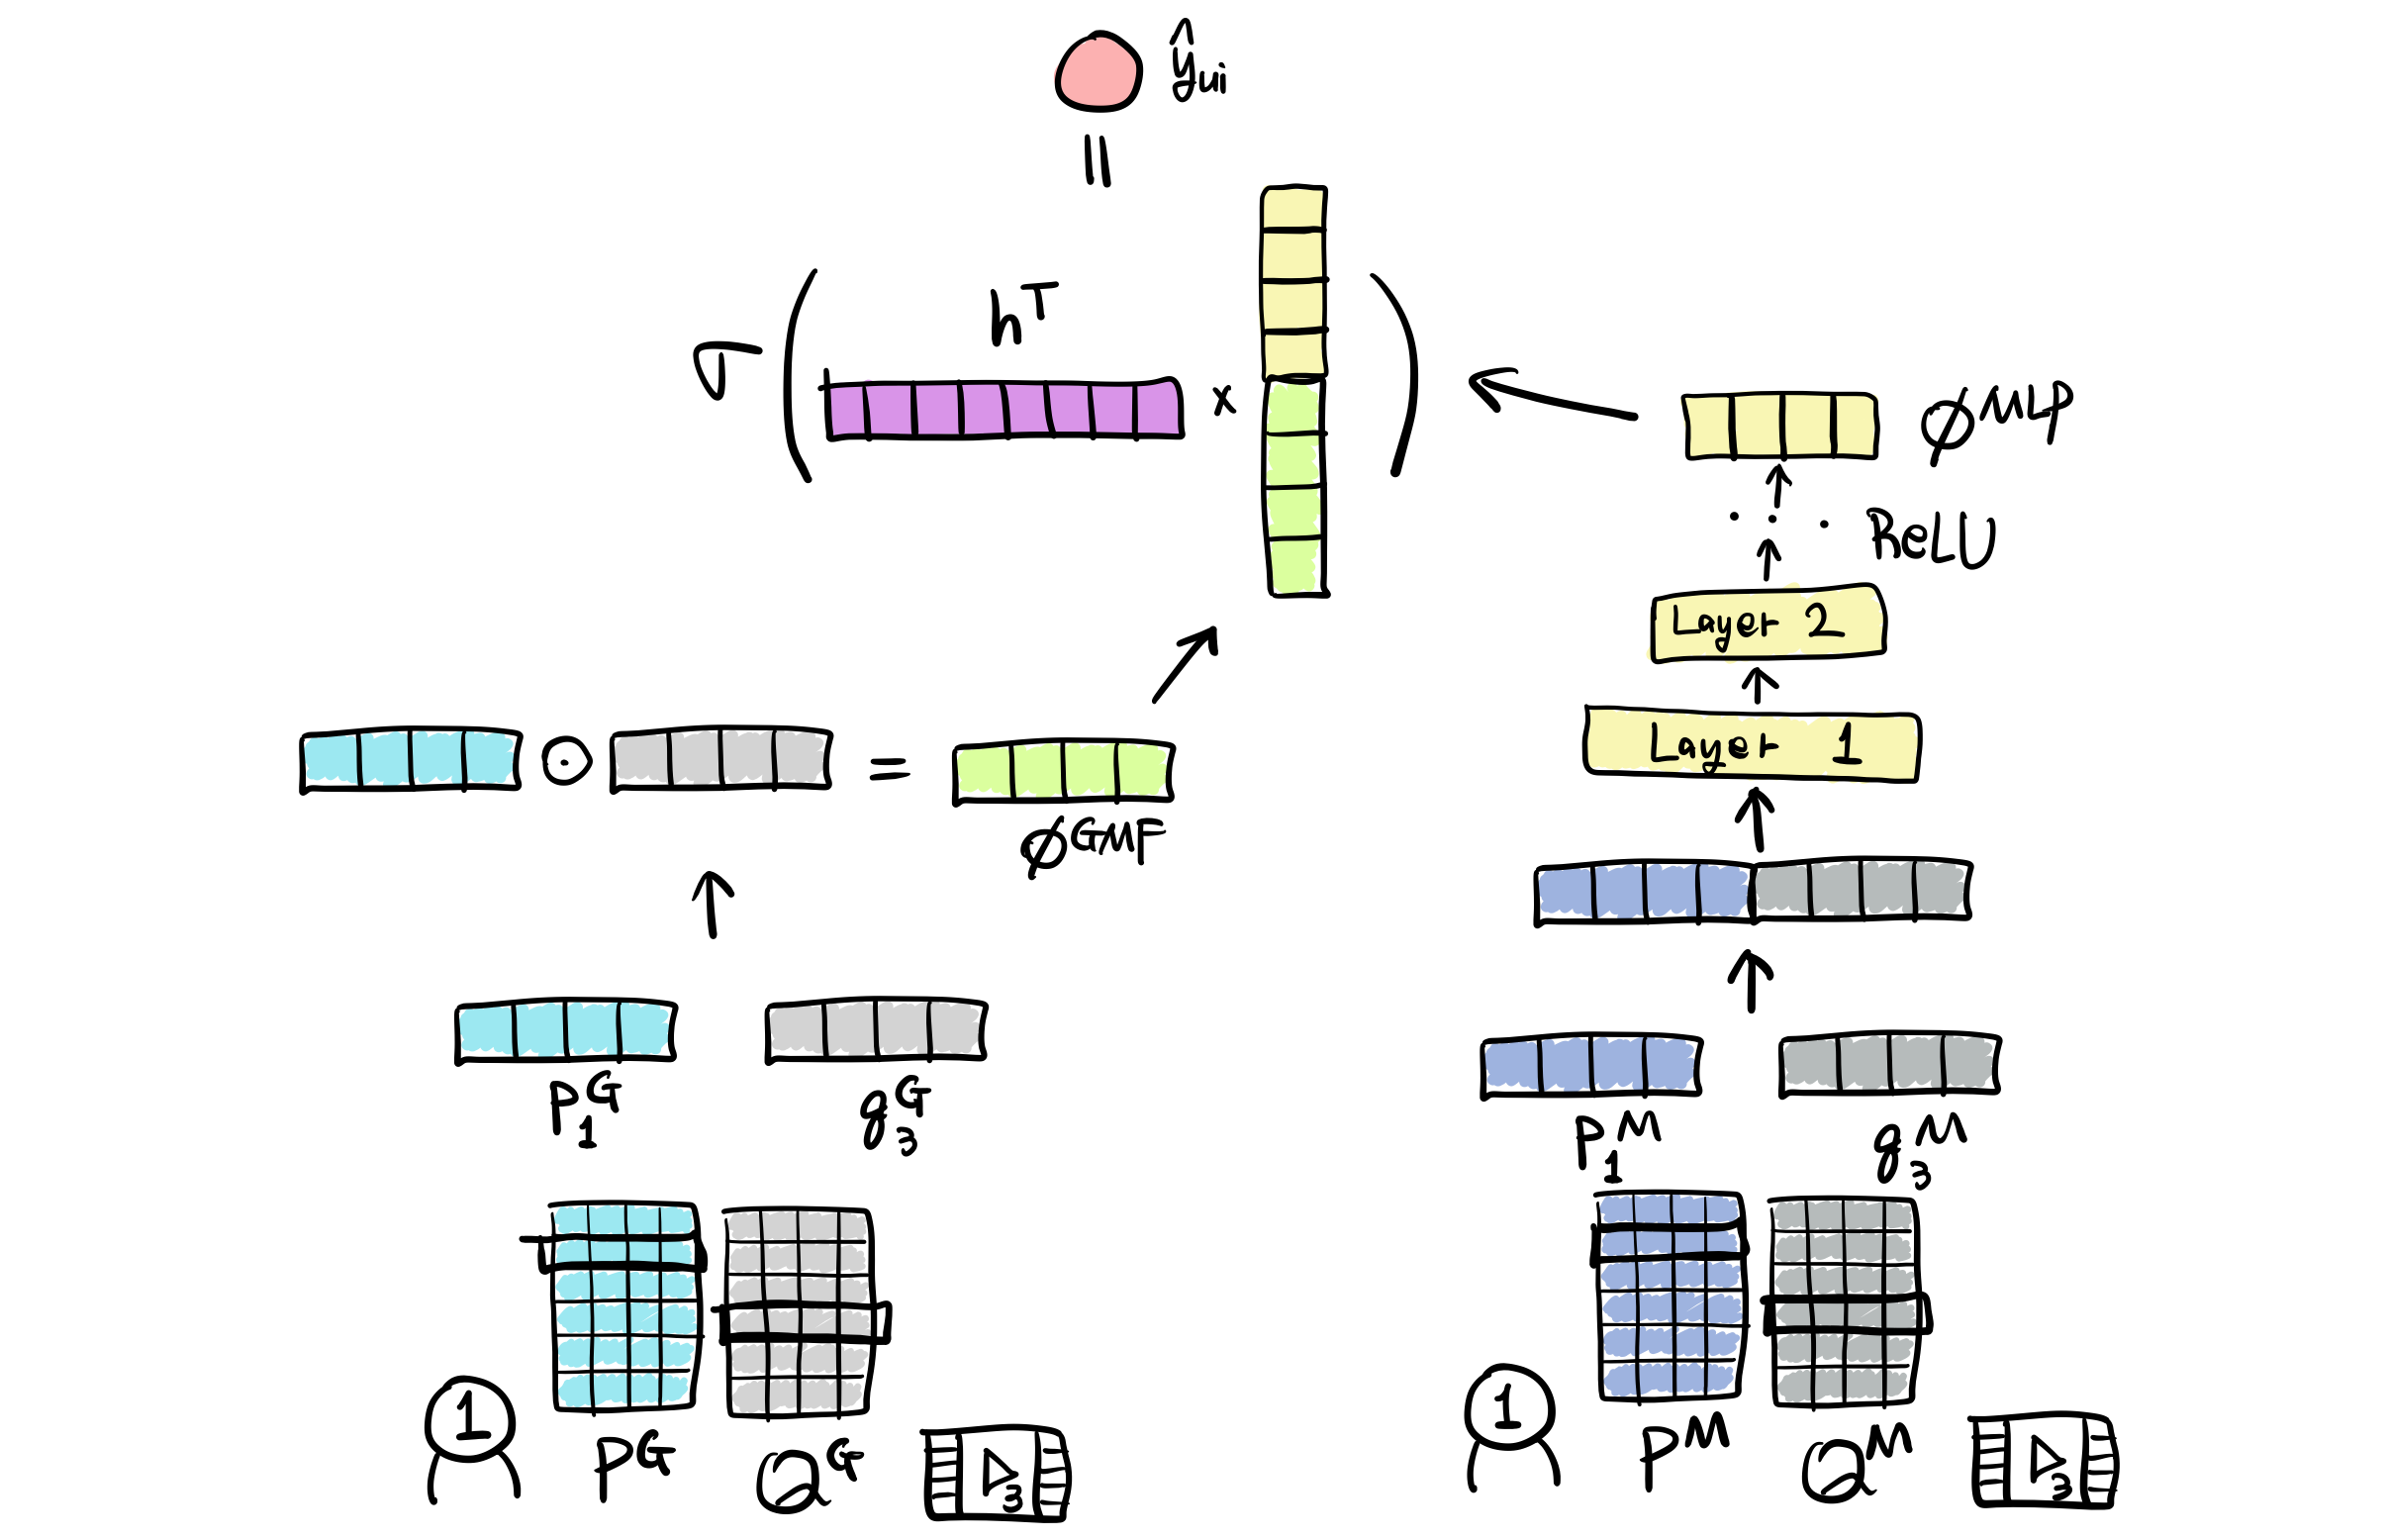 ŷui
=
σ ( hᵀ × )
ϕMLP
ReLU
Layer 2
Layer 1
⊙ =
ϕGMF
p₁G
q₃G
p₁M
q₃M
1
PG
QG
3
1
PM
QM
3